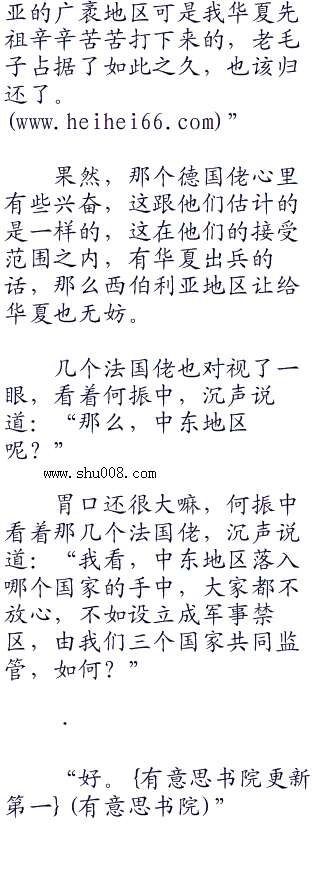 亚的广袤地区可是我华夏先
祖辛辛苦苦打下来的，老毛
子占据了如此之久，也该归
还了。
(www.heihei66.com)”
果然，那个德国佬心里
有些兴奋，这跟他们估计的
是一样的，这在他们的接受
范围之内，有华夏出兵的
话，那么西伯利亚地区让给
华夏也无妨。
几个法国佬也对视了一
眼，看着何振中，沉声说
道：“那么，中东地区
呢？”
www.shu008.com
胃口还很大嘛，何振中
看着那几个法国佬，沉声说
道：“我看，中东地区落入
哪个国家的手中，大家都不
放心，不如设立成军事禁
区，由我们三个国家共同监
管，如何？”
.
“好。{有意思书院更新
第一}(有意思书院)”